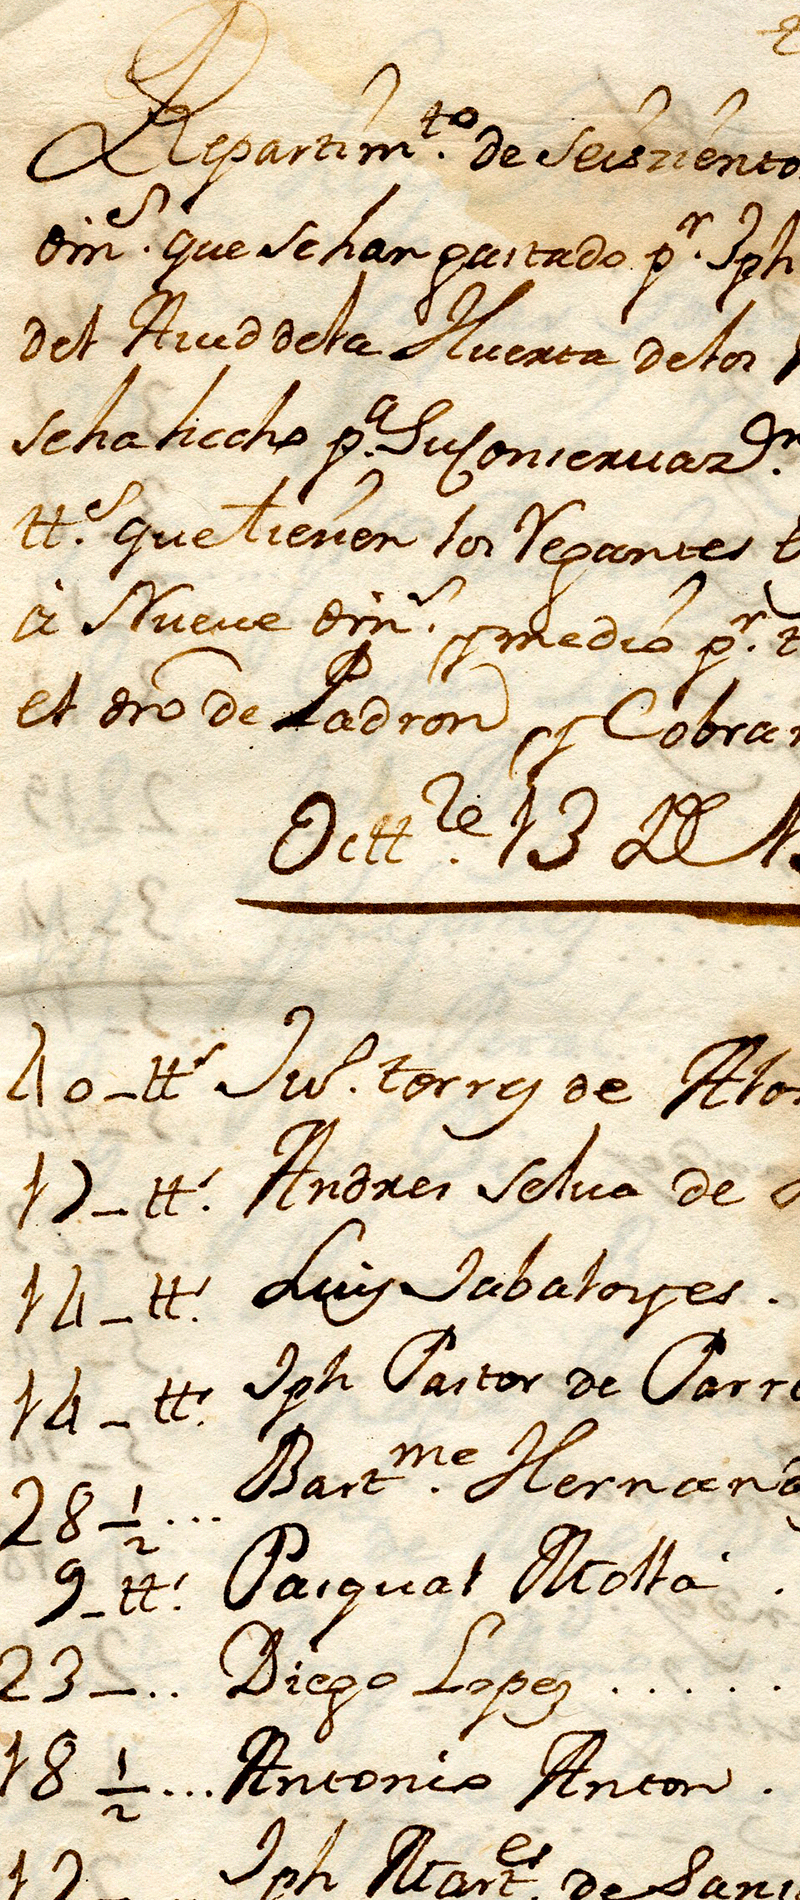 Repartim.to de seiszientos
din.s que se han gastado p.r Jph
del Azud de la Huerta de los
se ha hecho p.a Su Conservaz.on
tt.s que tienen los Regantes
à Nueve din.s y medio p.r
el dro de Padron y Cobrar
Octt.re 13 de
40_tt.s Ju.s torres de Alon
17_tt.s Andres selva de
14_tt.s Luis Sabaloyes .
14_tt.s Jph Pastor de Parre
28 1/2 ... Bart.me Hernand
9_tt.s Pasqual Molla .
23_.. Diego Lopez ......
18 1/2 ... Antonio Anton .
Jph Mart.es de Sans